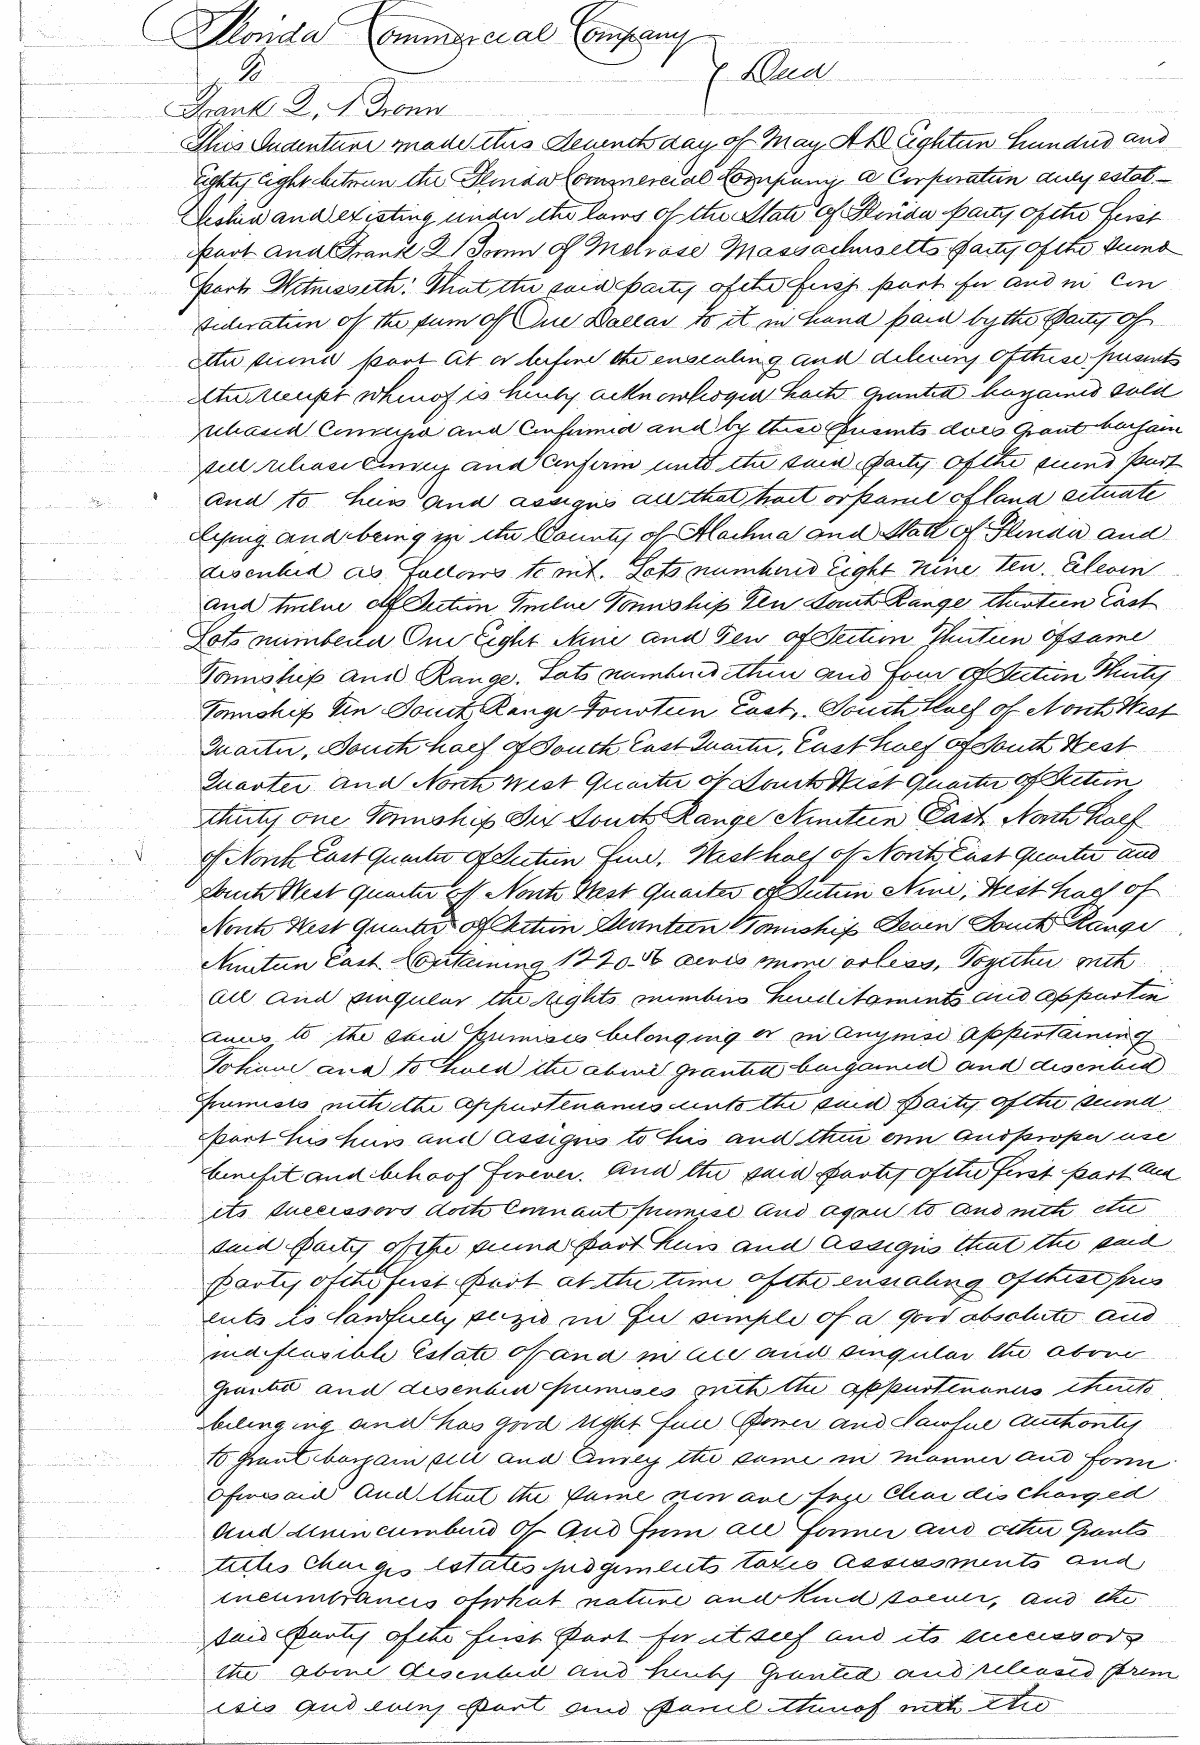 Florida Commercial Company
To } Deed
Frank Q. Brown
This Indenture made this Seventh day of May A.D. Eighteen hundred and
Eighty Eight between the Florida Commercial Company a Corporation duly estab-
lished and existing under the laws of the State of Florida party of the first
part and Frank Q. Brown of Melrose Massachusetts party of the second
part. Witnesseth: That the said party of the first part for and in con
sideration of the sum of One Dollar to it in hand paid by the Party of
the second part at or before the ensealing and delivery of these presents
the receipt whereof is hereby acknowledged hath granted bargained sold
released Conveyed and Confirmed and by these presents does grant bargain
sell release Convey and Confirm unto the said party of the second part
and to heirs and assigns all that tract or parcel of land situate
lying and being in the County of Alachua and State of Florida and
described as follows to wit. Lots numbered Eight nine ten. Eleven
and twelve of Section Twelve Township Ten South Range thirteen East
Lots numbered One Eight Nine and Ten of Section Thirteen of same
Township and Range. Lots numbered three and four of Section Thirty
Township Ten South Range Fourteen East. South Half of North West
Quarter, South half of South East Quarter, East half of South West
Quarter and North West Quarter of South West Quarter of Section
thirty one Township Six South Range Nineteen East North half
of North East Quarter of Section five, West half of North East Quarter and
South West Quarter of North West Quarter of Section Nine, West half of
North West Quarter of Section Seventeen Township Seven South Range
Nineteen East. Containing 1220.76 acres more or less, Together with
all and singular the rights members hereditaments and appurten
ances to the said premises belonging or in anywise appertaining
To have and to hold the above granted bargained and described
premises with the appurtenances unto the said party of the second
part his heirs and assigns to his and their own and proper use
benefit and behoof forever. And the said party of the first part and
its successors doth Covenant promise and agree to and with the
said party of the second part heirs and assigns that the said
party of the first part at the time of the ensealing of these pres
ents is lawfully seized in fee simple of a good absolute and
indefeasible Estate of and in all and singular the above
granted and described premises with the appurtenances thereto
belonging and has good right full power and lawful authority
to grant bargain sell and Convey the same in manner and form
aforesaid And that the same now are free Clear discharged
and unincumbered of and from all former and other grants
titles Charges estates judgements taxes assessments and
incumbrances of what nature and Kind soever, and the
said party of the first part for itself and its successors
the above described and hereby granted and released prem
ises and every part and parcel thereof with the